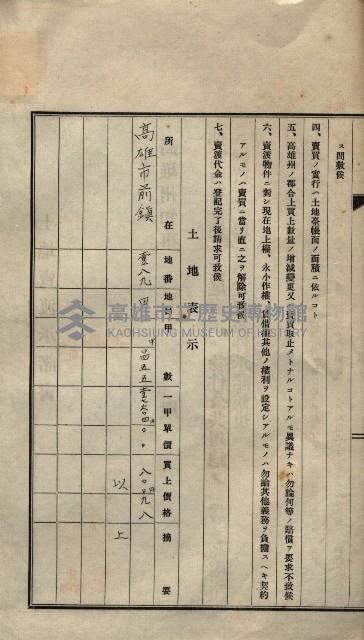 ス間敷候
四、賣買ノ實行ハ土地臺帳面ノ面積ニ依ルコト
五、高雄州ノ都合上買上數量ノ增減變更又ハ賣買取止メトナルコトアルモ異議ナキハ勿論何等ノ賠償ヲ要求不致候
六、賣渡物件ニ對シ現在地上權、永小作權、賃借權其他ノ權利ヲ設定シアルモノハ勿論其他義務ヲ負擔スヘキ契約
アルモノハ賣買ニ當リ直ニ之ヲ解除可致候
七、賣渡代金ハ登記完了後請求可致候
土地表示
所在 地番 地目 甲數 一甲單價 買上價格 摘要
高雄市前鎮 壹八九
以上
高雄市立歷史博物館
KAOHSIUNG MUSEUM OF HISTORY